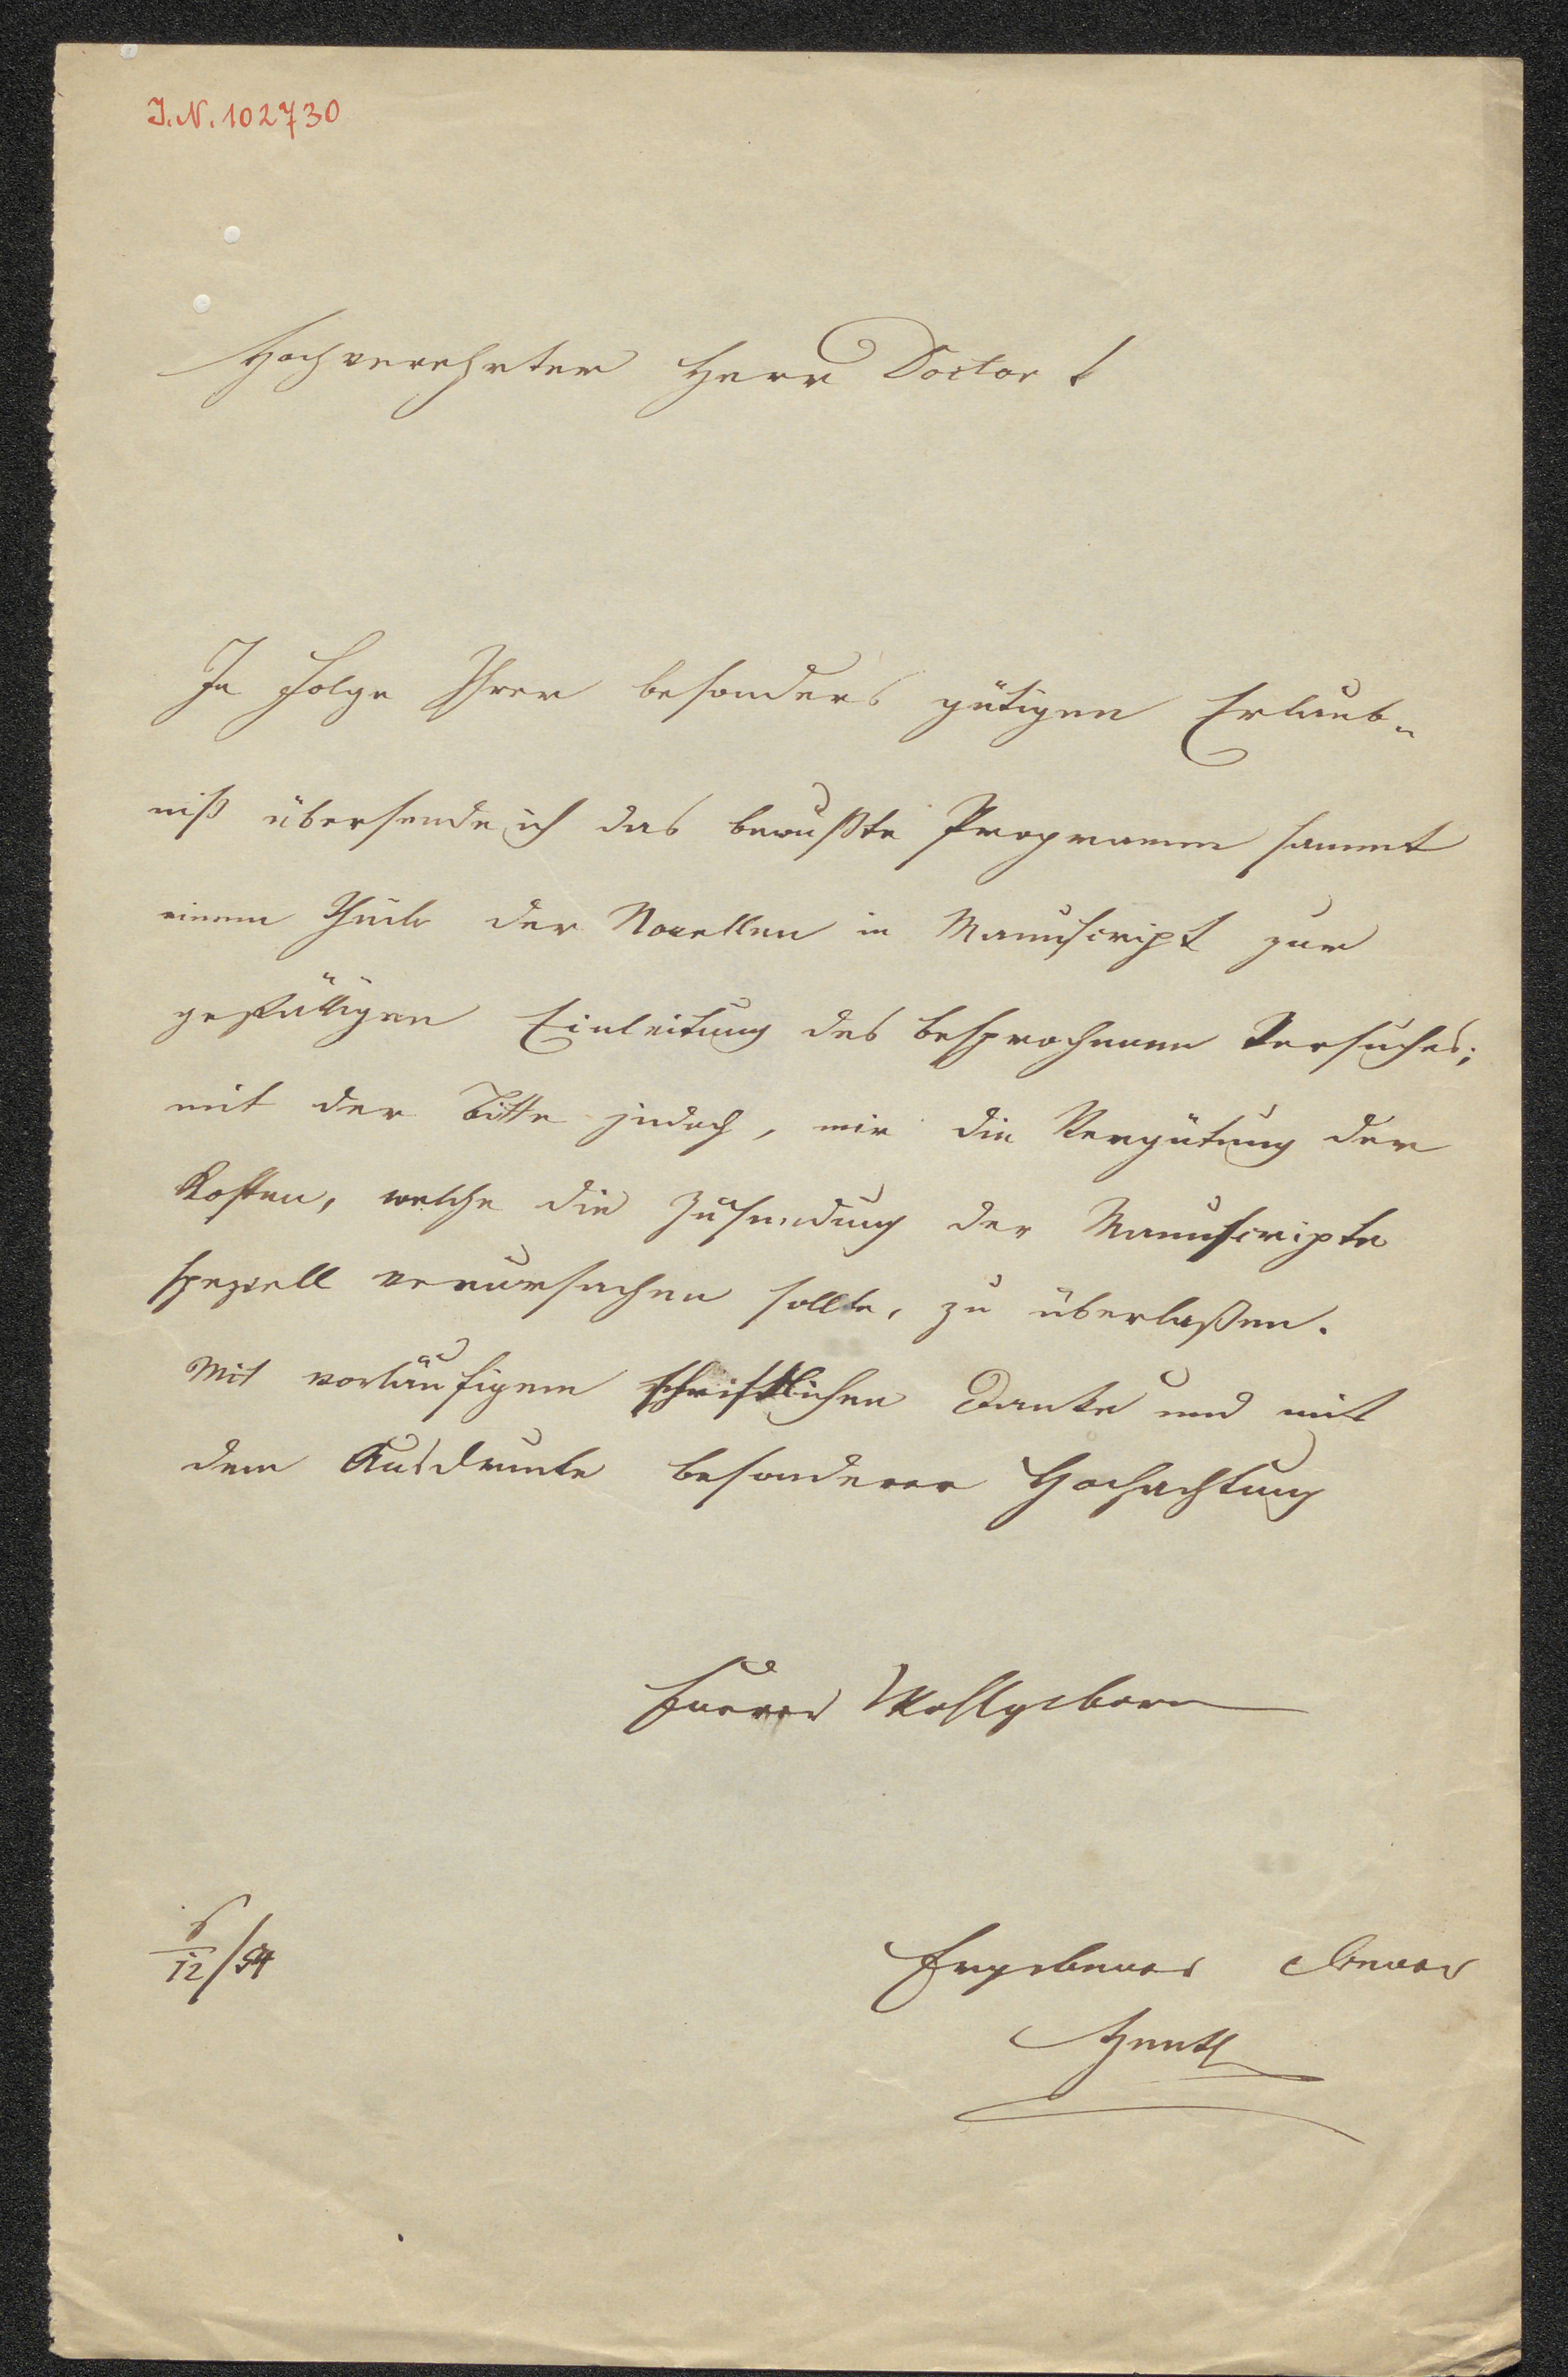 J.N. 102730
Hochverehrter Herr Doctor!
In Folge Ihrer besonders gütigen Erlaub-
niß übersende ich das bewußte Programm sammt
einem Theile der Novellen in Manuscript zur
gefälligen Einleitung des besprochenen Versuches;
mit der Bitte jedoch, mir die Vergütung der
Kosten, welche die Zusendung der Manuscripte
speziell verursachen sollte, zu überlaßen.
Mit vorläufigem schriftlichen Danke und mit
dem Ausdrucke besonderer Hochachtung
Euerer Wohlgeborn
Ergebener
12/54